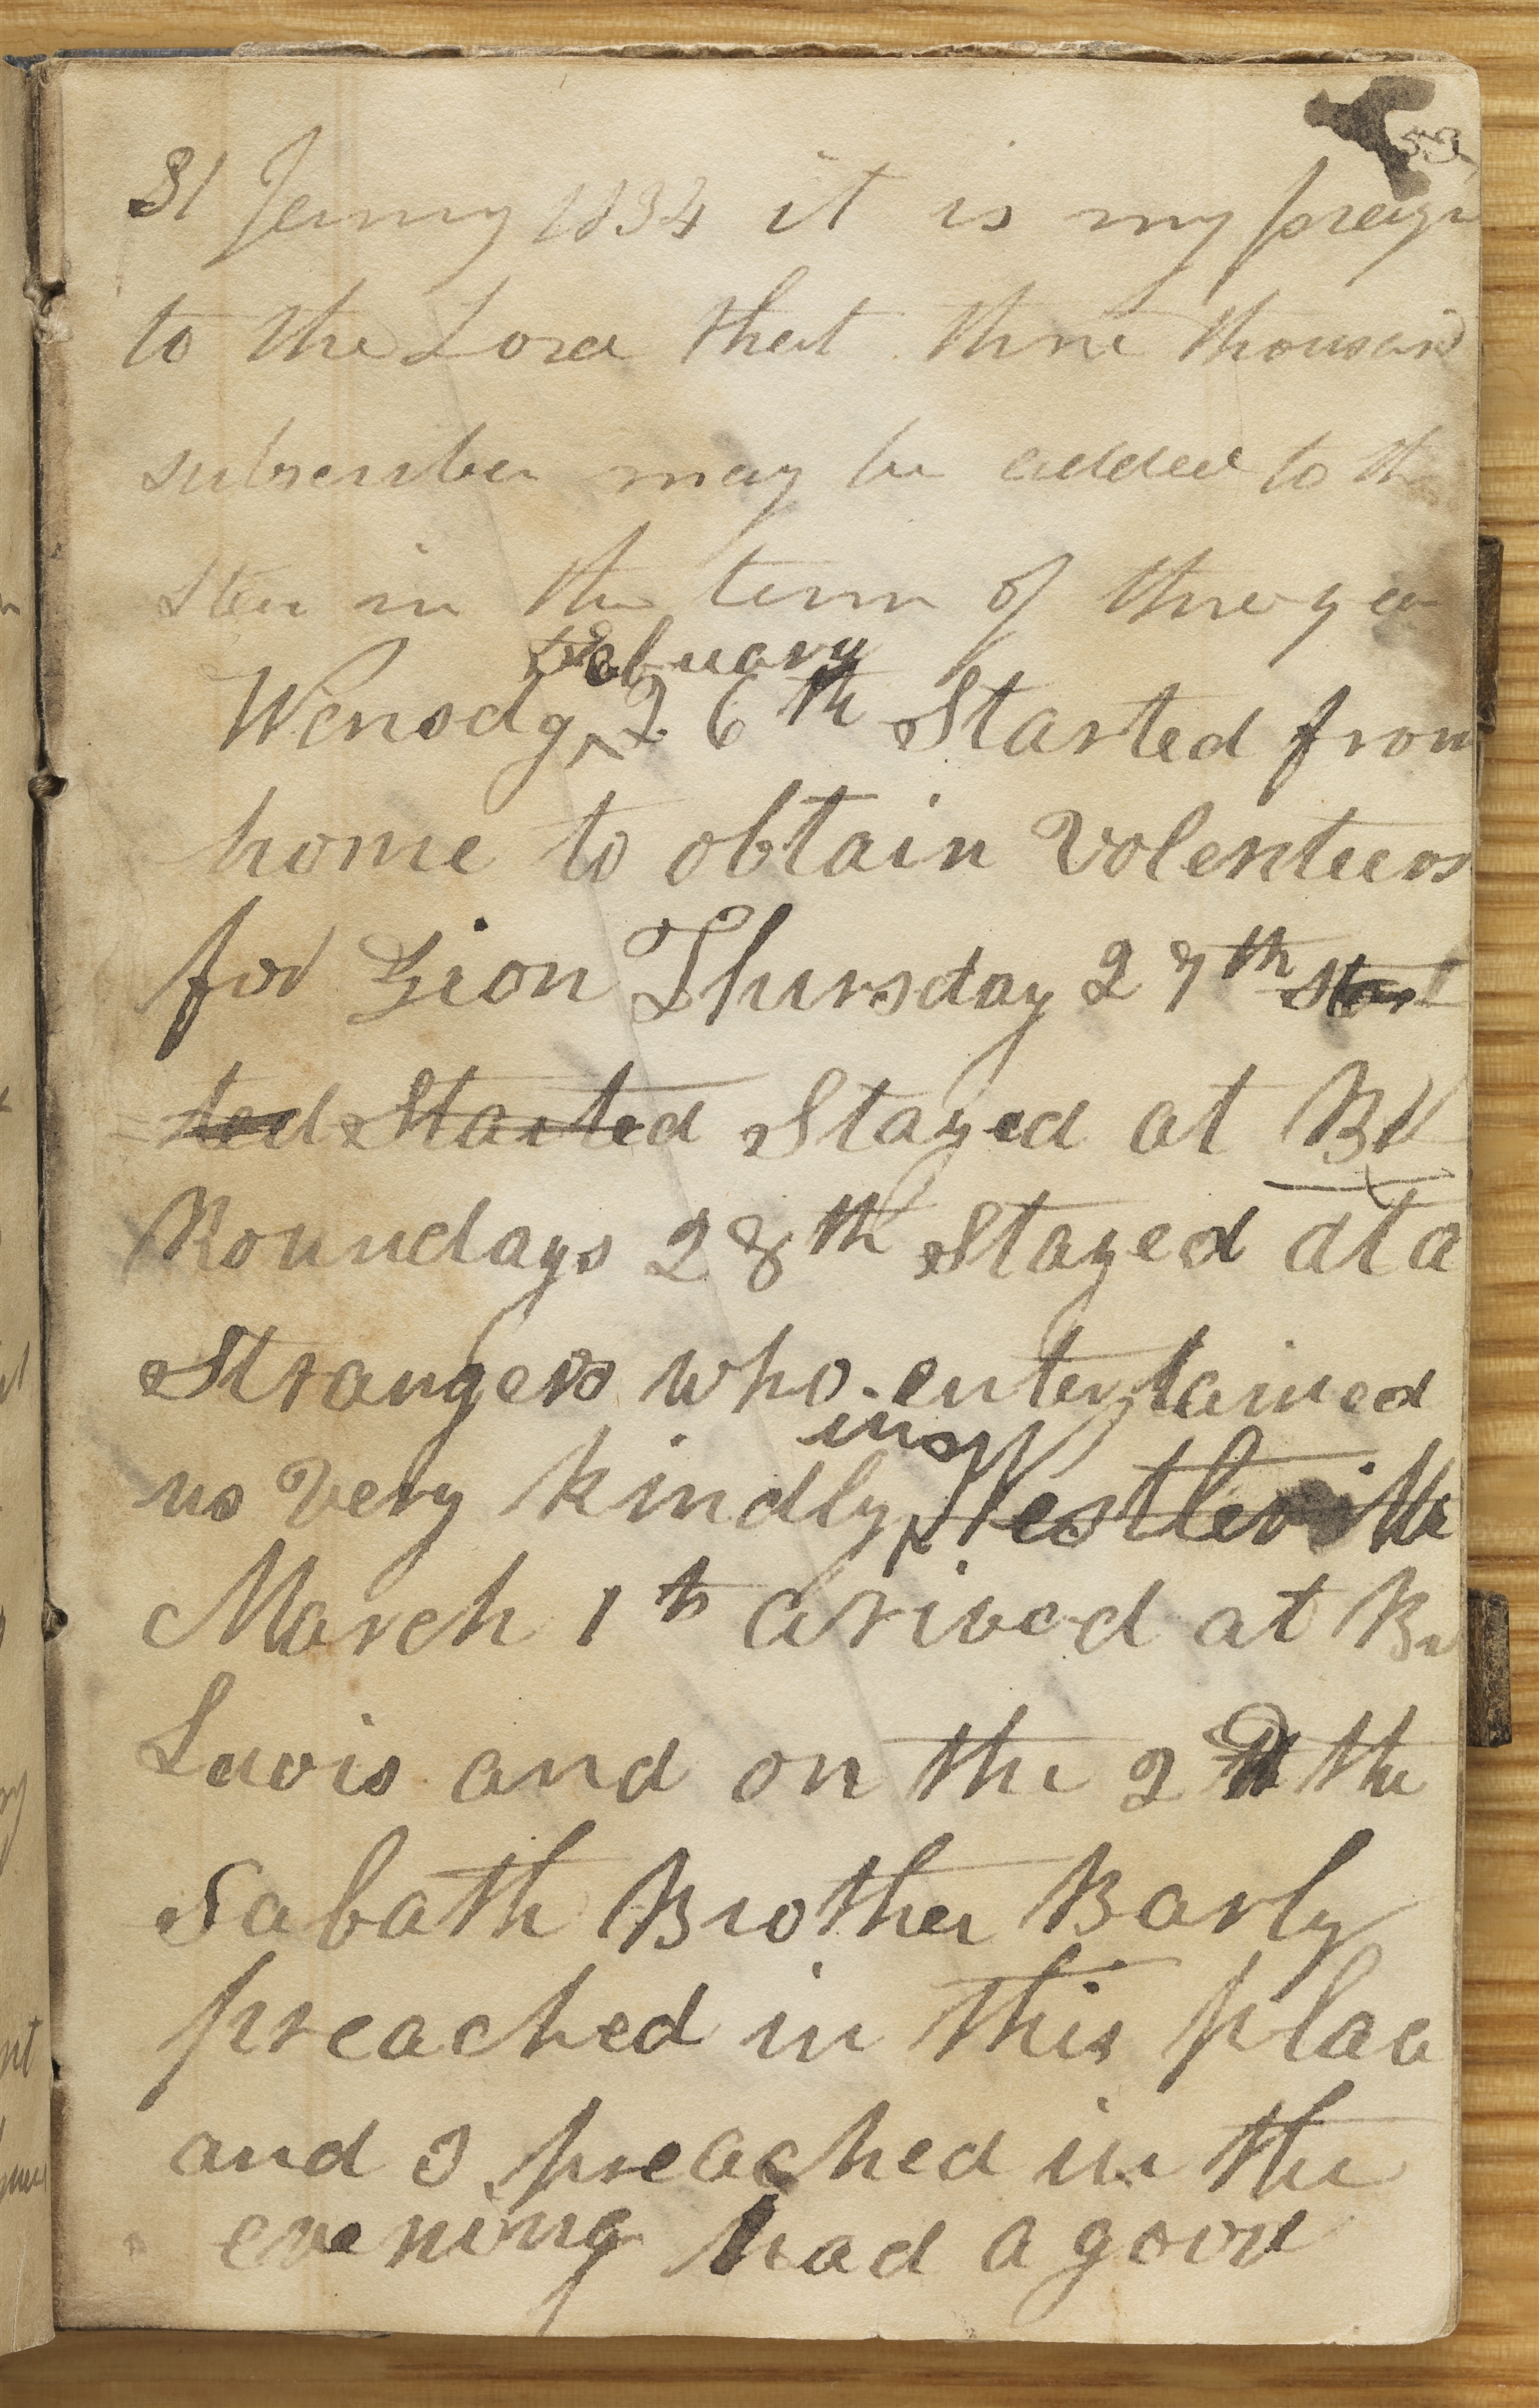 53
31 Jenuary 1834 it is my prayer
to the Lord that three thousand
subscriber may be added to the
Star in the term of three yea
Wensdy February 26th Started from
home to obtain volenteers
for Zion Thursday 27th Start
ted Started Stayed at Br
Roundays 28th Stayed at a
Strangers who entertained
us very kindly in Westleville
March 1th arived at Br
Lewis and on the 2d the
Sabath Brother Barly
preached in this place
and I preached in the
evening had a good